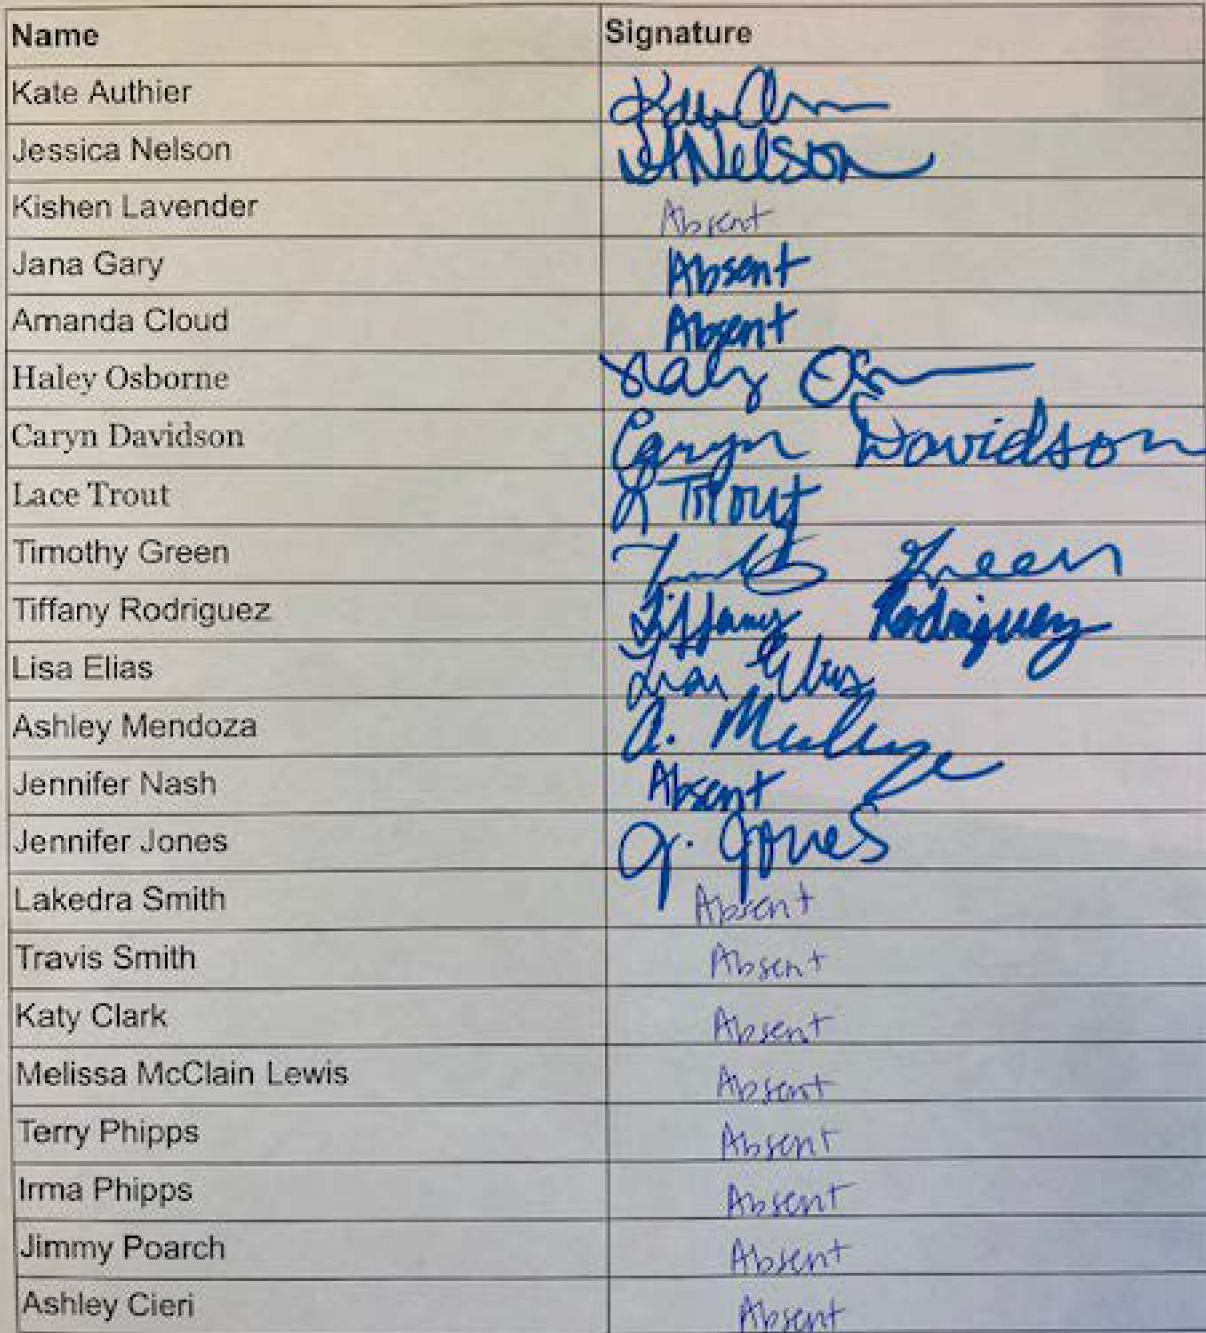 Name Signature
Kate Authier
Jessica Nelson JANelson
Kishen Lavender Absent
Jana Gary Absent
Amanda Cloud Absent
Haley Osborne Haley
Caryn Davidson Caryn Davidson
Lace Trout L Trout
Timothy Green Green
Tiffany Rodriguez Tiffany Rodriguez
Lisa Elias Lisa Elias
Ashley Mendoza A.
Jennifer Nash Absent
Jennifer Jones J. Jones
Lakedra Smith Absent
Travis Smith Absent
Katy Clark Absent
Melissa McClain Lewis Absent
Terry Phipps Absent
Irma Phipps Absent
Jimmy Poarch Absent
Ashley Cieri Absent